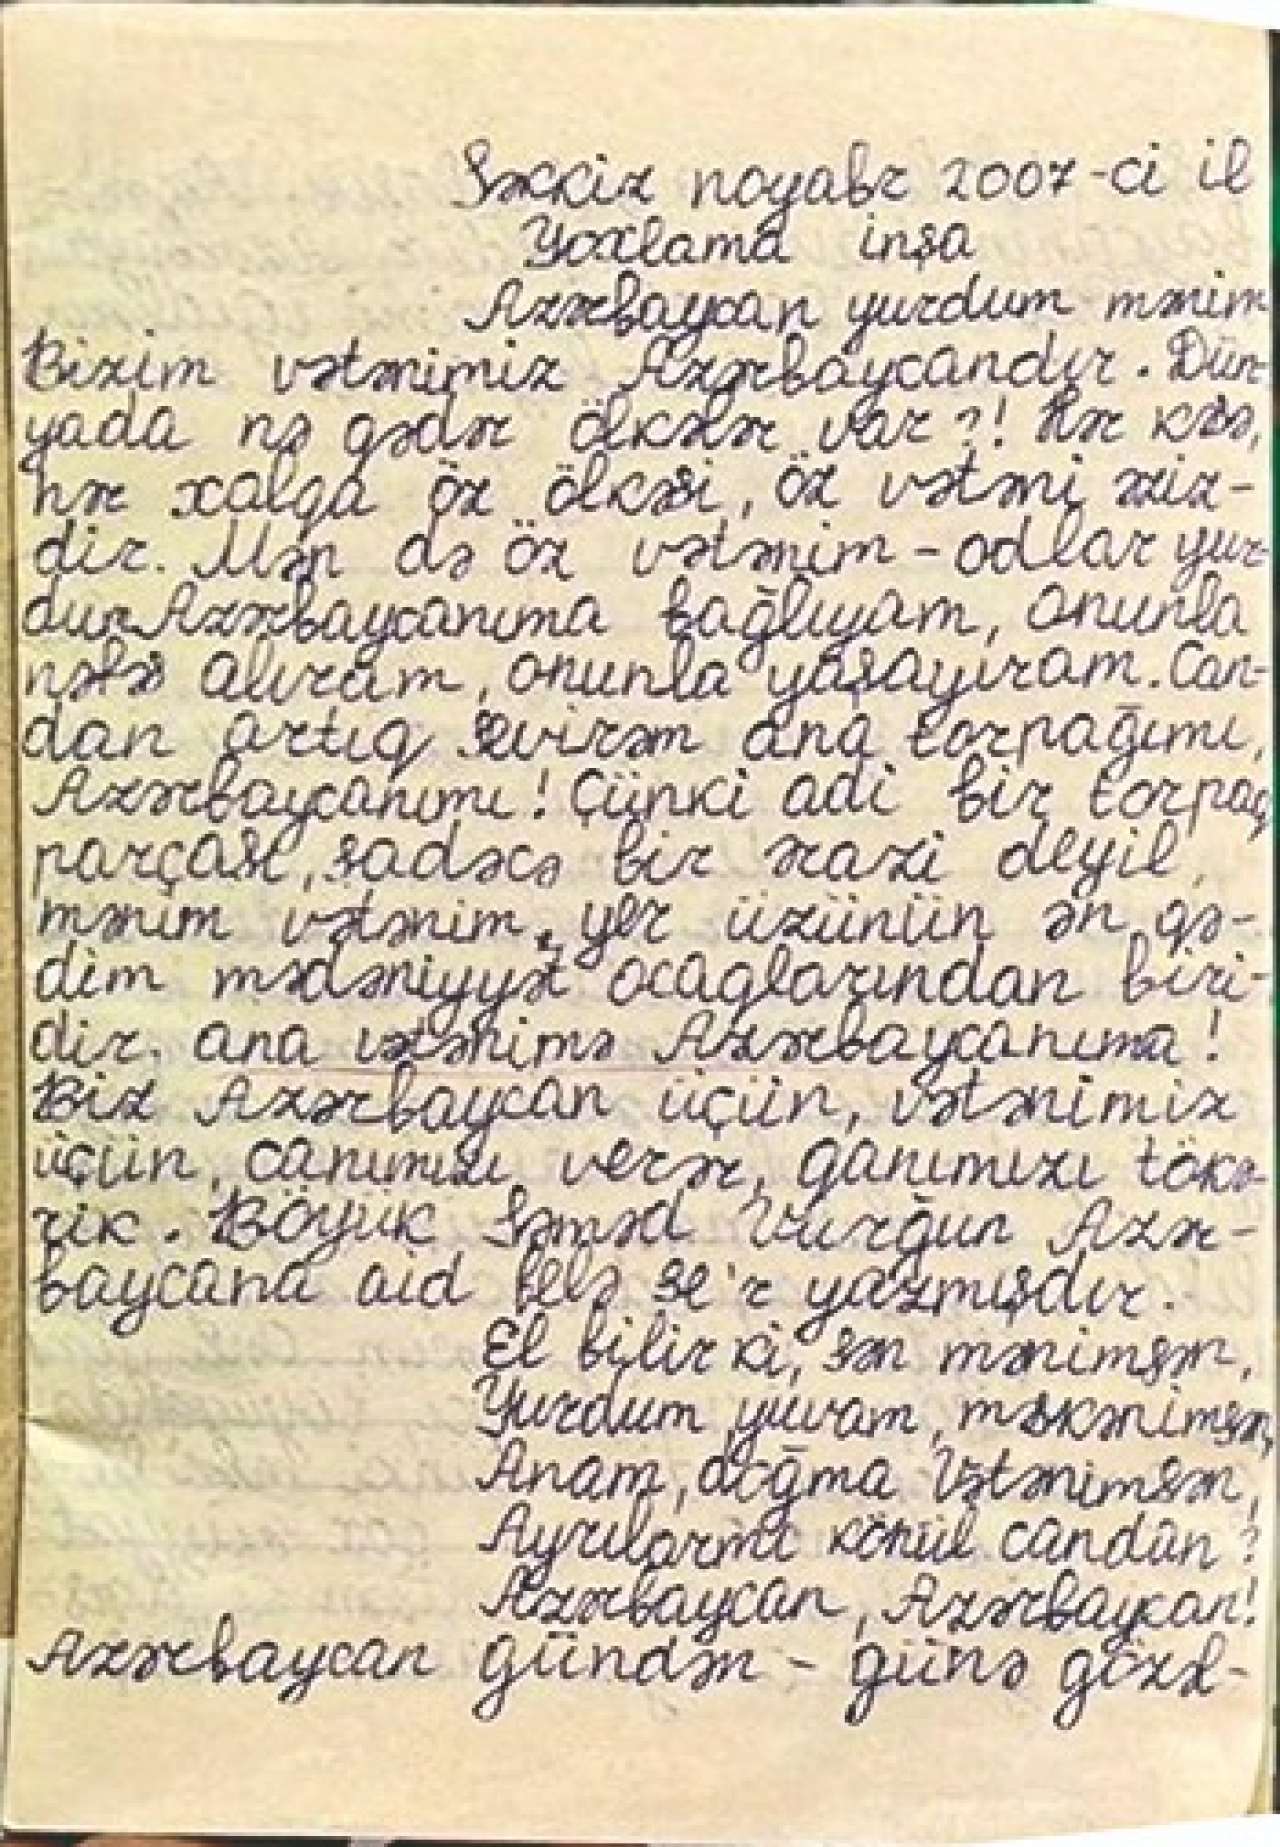 Səkkiz noyabr 2007-ci il
Yoxlama inşa
Azərbaycan yurdum mənim
Bizim vətənimiz Azərbaycandır. Dün-
yada nə qədər ölkələr var?! Hər kəsə,
hər xalqa öz ölkəsi, öz vətəni əziz-
dir. Mən də öz vətənim - odlar yur-
dum Azərbaycanıma bağlıyam, onunla
nəfəs alıram, onunla yaşayıram. Can-
dan artıq sevirəm ana torpağımı,
Azərbaycanımı! Çünki adi bir torpaq
parçası, sadəcə bir ərazi deyil,
mənim vətənim, yer üzünün ən qə-
dim mədəniyyət ocaqlarından biri-
dir. ana vətənimə Azərbaycanıma!
Biz Azərbaycan üçün, vətənimiz
üçün, canımızı verər, qanımızı tökə-
rik. Böyük Səməd Vurğun Azər-
baycana aid belə şe'r yazmışdır.
El bilir ki, sən mənimsən,
Yurdum, yuvam, məskənimsən,
Anam, doğma Vətənimsən,
Ayrılarmı könül candan?
Azərbaycan, Azərbaycan!
Azərbaycan gündən - günə gözəl-